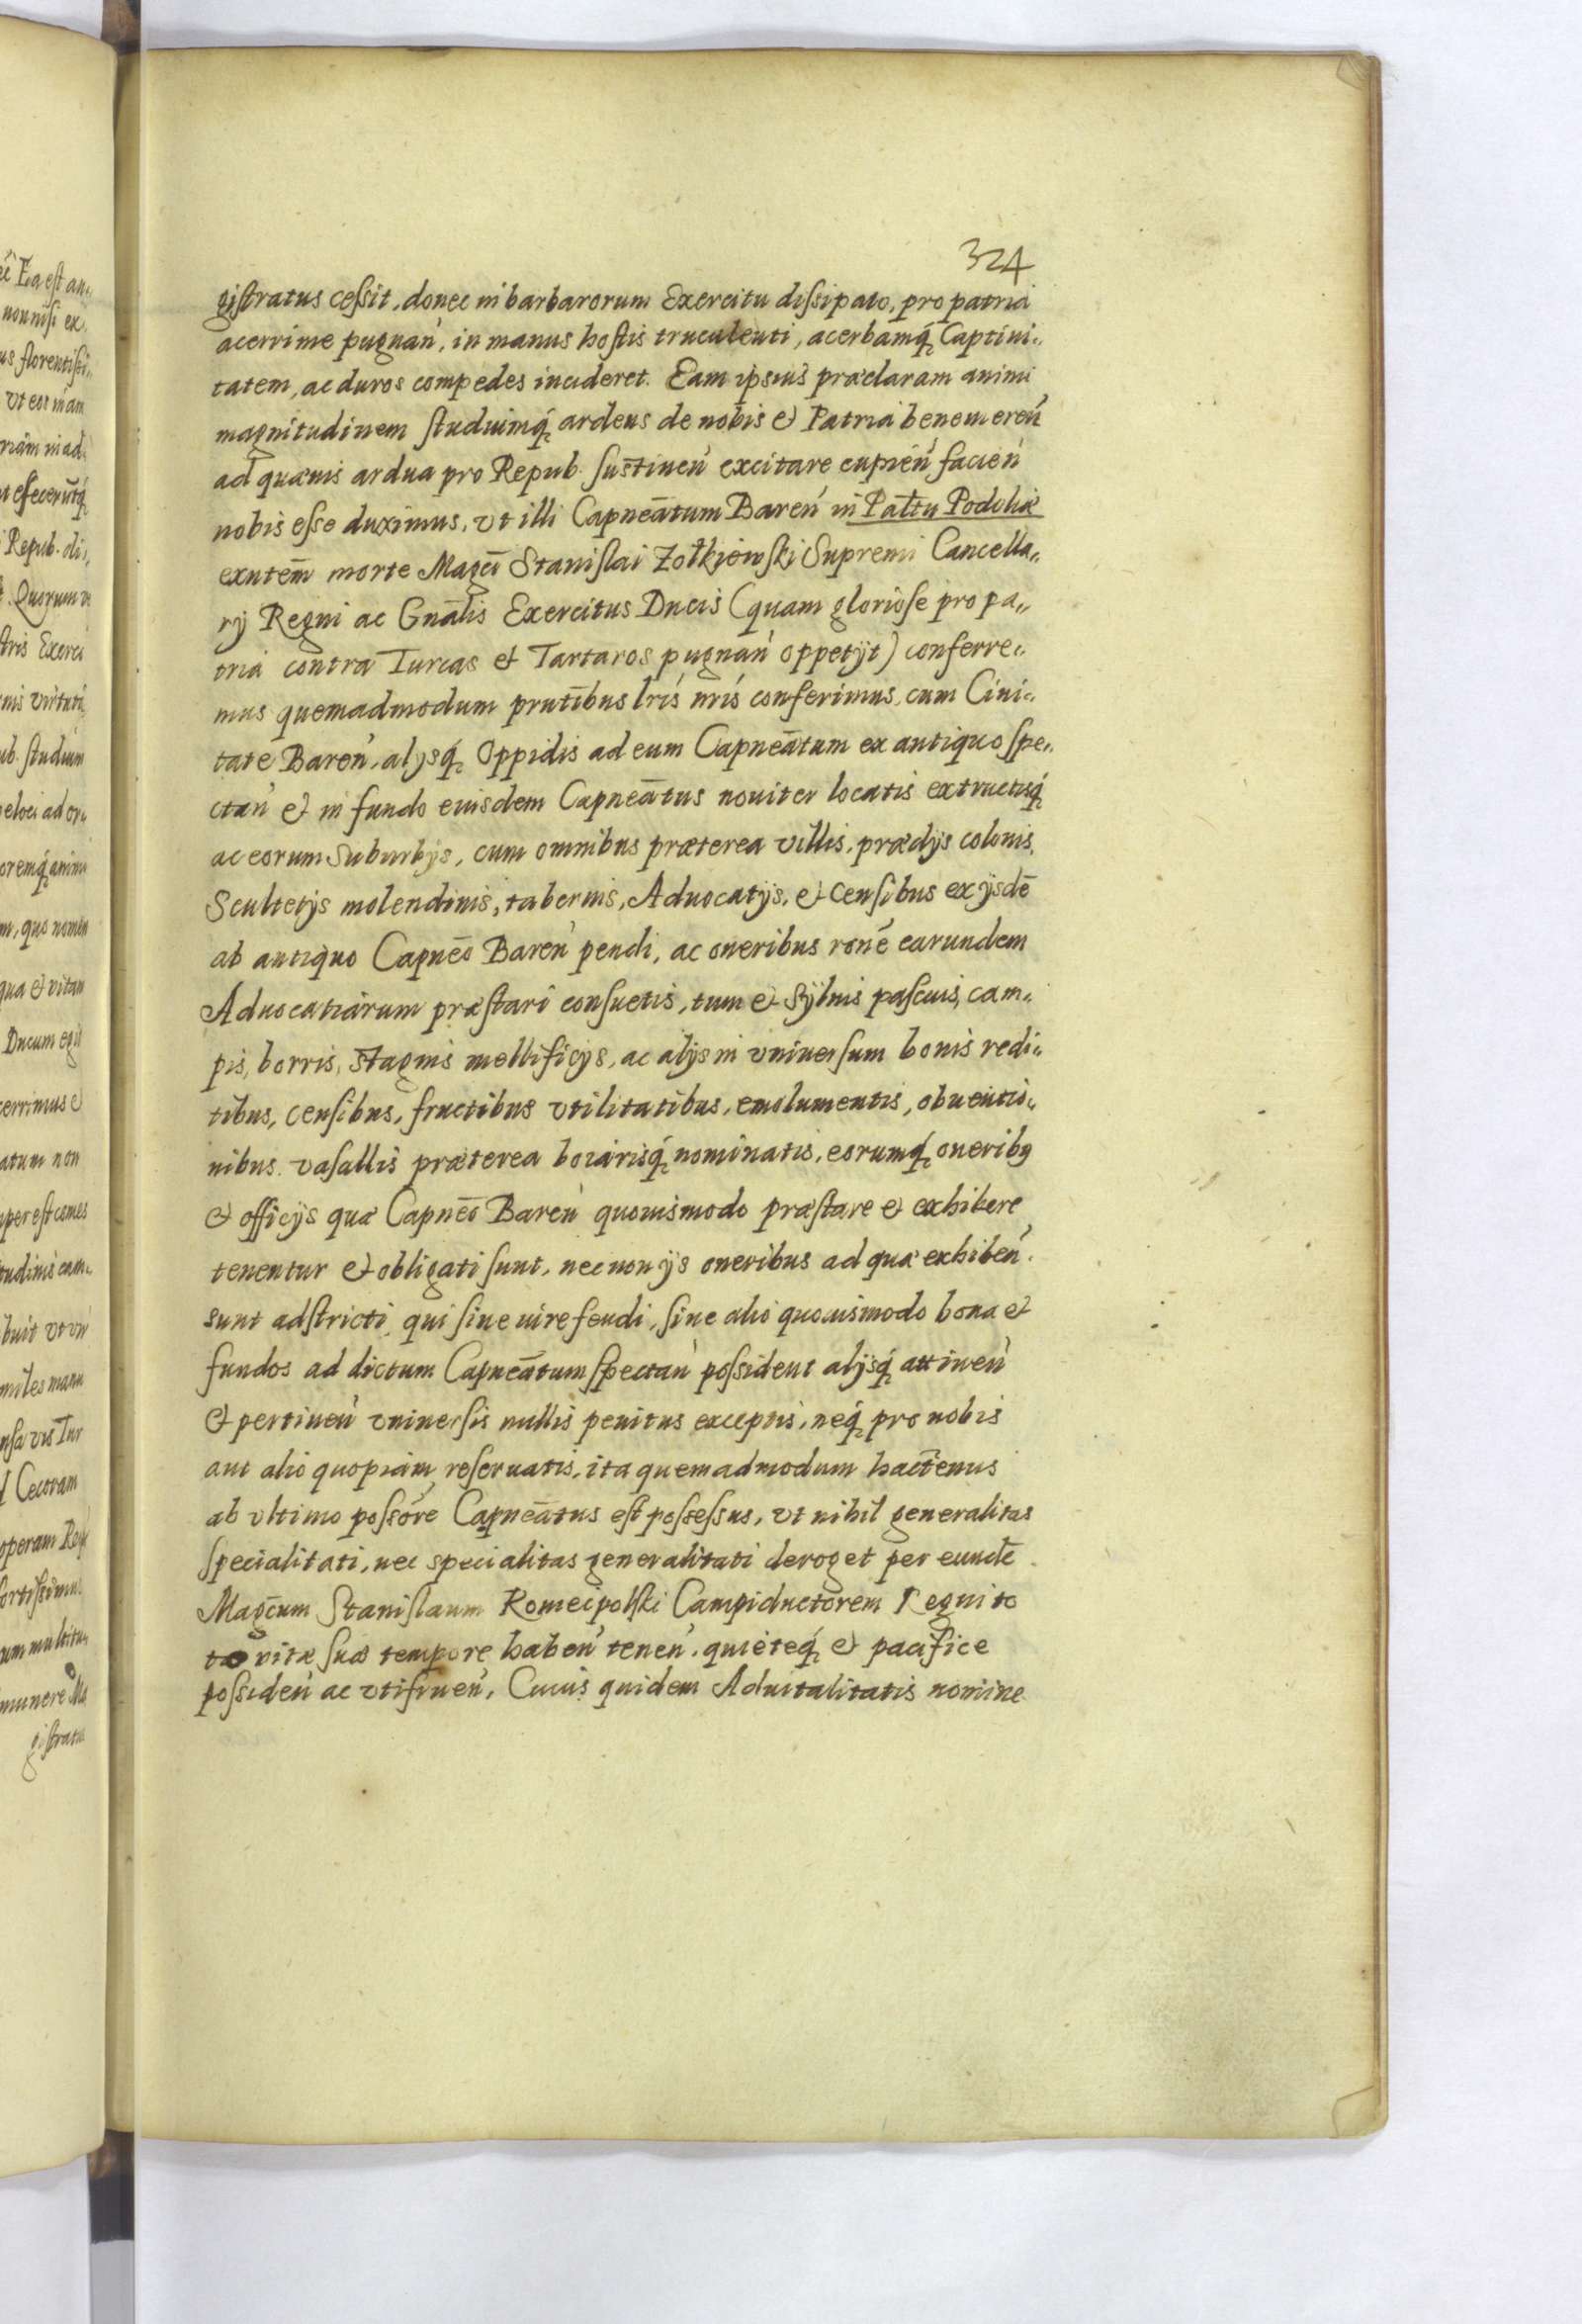 324
gistratus cessit, donec in barbarorum Exercitu dissipato, pro patria
acerrime pugnan̕, in manus hostis truculenti, acerbamq́ Captiui„
tatem, ac duros compedes incideret. Eam ipsius præclaram animi
magnitudinem studiumq́ ardens de nobis & Patria benemeren̕
ad quæuis ardua pro Repub. sustinen̕ excitare cupien̕ facien̕
nobis esse duximus, vt illi Capneātum Baren̕ in Pałtu Podoliæ
exntem̄ morte Magci Stanislai Żołkiewski Supremi Cancella„
rij Regni ac Gnālis Exercitus Ducis (quam gloriose pro pa„
tria contra Turcas & Tartaros pugnan̕ oppetijt) conferre„
mus quemadmodum prntibus lris nris conferimus, cum Ciui„
tate Baren̕, alijsq́ Oppidis ad eum Capneātum ex antiquo spe„
ctan̕ & in fundo eiusdem Capneātus nouiter locatis extructisq́
ac eorum Suburbijs, cum omnibus præterea villis, prædijs colonis,
Scultetijs molendinis, tabernis, Aduocatijs, & censibus ex ijsdē
ab antiquo Capneō Baren̕ pendi, ac oneribus ronē earundem
Aduocatiarum præstari consuetis, tum & Syluis pascuis, cam„
pis, borris, stagnis mellificijs, ac alijs in vniuersum bonis redi„
tibus, censibus, fructibus vtilitatibus, emolumentis, obuentio„
nibus. vasallis præterea boiarisq́ nominatis, eorumq́ oneribꝯ
& officijs quæ Capneō Baren̕ quouismodo præstare & exhibere
tenentur & obligati sunt, necnon ijs oneribus ad quæ exhiben̕.
sunt adstricti qui siue iure feudi, siue alio quouismodo bona &
fundos ad dictum Capneātum spectan̕ possident alijsq́ attinen̕
& pertinen̕ vniuersis nullis penitus exceptis, neq́ pro nobis
aut alio quopiam reseruatis, ita quemadmodum hactenus
ab vltimo possōre Capneātus est possessus, vt nihil generalitas
specialitati, nec specialitas generalitati deroget per eundē
Magcum Stanislaum Koniecpolski Campiductorem Regni to
to vitæ suæ tempore haben̕ tenen̕. quieteq́ & pacifice
possiden̕ ac vtifruen̕, Cuius quidem Aduitalitatis nomine